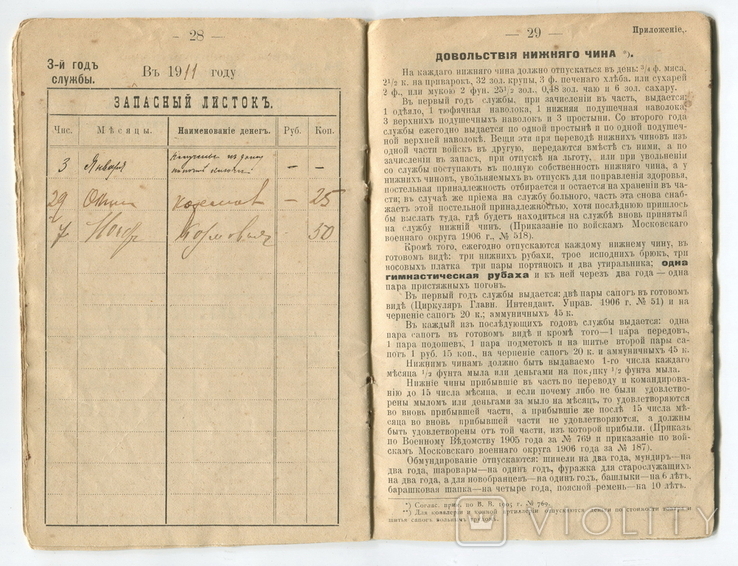 — 28 —
3-й годъ
службы.
Въ 1911 году
ЗАПАСНЫЙ ЛИСТОКЪ.
Чис. Мѣсяцы. Наименованіе денегъ. Руб. Коп.
3 Января — —
29 — 25
7 50
— 29 —
Приложеніе.
ДОВОЛЬСТВІЯ НИЖНЯГО ЧИНА *).
На каждаго нижняго чина должно отпускаться въ день: ³/₄ ф. мяса,
2¹/₂ к. на приварокъ, 32 зол. крупы, 3 ф. печенаго хлѣба. или сухарей
2 ф., или мукою 2 фун. 25¹/₂ зол., 0,48 зол. чаю и 6 зол. сахару.
Въ первый годъ службы, при зачисленіи въ часть, выдается:
1 одѣяло, 1 тюфячная наволока, 1 нижняя подушечная наволока,
3 верхнихъ подушечныхъ наволокъ и 3 простыни. Со второго года
службы ежегодно выдается по одной простынѣ и по одной подушеч-
ной верхней наволокѣ. Вещи эти при переводѣ нижнихъ чиновъ изъ
одной части войскъ въ другую, передаются вмѣстѣ съ ними, а по
зачисленіи въ запасъ, при отпускѣ на льготу, или при увольненіи
со службы поступаютъ въ полную собственность нижняго чина, а у
нижнихъ чиновъ, увольняемыхъ въ отпускъ для поправленія здоровья,
постельная принадлежность отбирается и остается на храненіи въ ча-
сти; въ случаѣ же пріема на службу больного, часть эта снова снаб-
жаетъ этой постельной принадлежностью, хотя послѣднюю пришлось
бы выслать туда, гдѣ будетъ находиться на службѣ вновь принятый
на службу нижній чинъ. (Приказаніе по войскамъ Московскаго
военнаго округа 1906 г., № 518).
Кромѣ того, ежегодно отпускаются каждому нижнему чину, въ
готовомъ видѣ: три нижнихъ рубахи, трое исподнихъ брюкъ, три
носовыхъ платка три пары портянокъ и два утиральника; одна
гимнастическая рубаха и къ ней черезъ два года — одна
пара пристяжныхъ погонъ.
Въ первый годъ службы выдается: двѣ пары сапогъ въ готовомъ
видѣ (Циркуляръ Главн. Интендант. Управ. 1906 г. № 51) и на
черненіе сапогъ 20 к.; аммуничныхъ 45 к.
Въ каждый изъ послѣдующихъ годовъ службы выдается: одна
пара сапогъ въ готовомъ видѣ и кромѣ того—1 пара передовъ,
1 пара подошевъ, 1 пара подметокъ и на шитье второй пары сапо-
гъ 1 руб. 15 коп., на черненіе сапогъ 20 к. и аммуничныхъ 45 к.
Нижнимъ чинамъ должно быть выдаваемо 1-го числа каждаго
мѣсяца ¹/₂ фунта мыла или деньгами на покупку ¹/₂ фунта мыла.
Нижніе чины прибывшіе въ часть по переводу и командирова-
нію до 15 числа мѣсяца, и если почему либо не были удовлетво-
рены мыломъ или деньгами за мыло на мѣсяцъ, то удовлетворяются
во вновь прибывшей части, а прибывшіе же послѣ 15 числа мѣ-
сяца во вновь прибывшей части не удовлетворяются, а должны
быть удовлетворены отъ той части, изъ которой прибыли. (Приказъ
по Военному Вѣдомству 1905 года за № 769 и приказаніе по вой-
скамъ Московскаго военнаго округа 1906 года за № 187).
Обмундированіе отпускаются: шинели на два года, мундиръ—на
два года, шаровары—на одинъ годъ, фуражка для старослужащихъ
на два года, а для новобранцевъ—на одинъ годъ, башлыки—на 6 лѣтъ,
барашковая шапка—на четыре года, поясной ремень—на 10 лѣтъ.
*) Соглас. прик. по В. В. г. № 769.
**) Для кавалеріи и конной артиллеріи отпускаются деньги по стоимости и
шитье сапогъ вольнымъ трудомъ.
VIOLITY